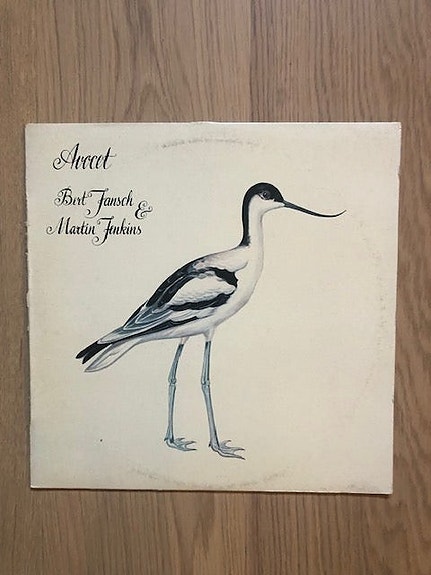 Avocet
Bert Jansch &
Martin Jenkins